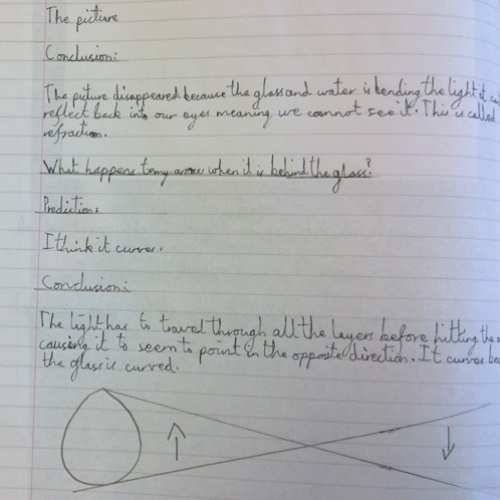 The picture
Conclusion:
The picture disappeared because the glass and water is bending the light it
reflect back into our eyes meaning we cannot see it. This is called
refraction.
What happens to my arrow when it is behind the glass?
Prediction:
I think it curves.
Conclusion:
The light has to travel through all the layers before hitting the
causing it to seem to point in the opposite direction. It curves
the glass is curved.